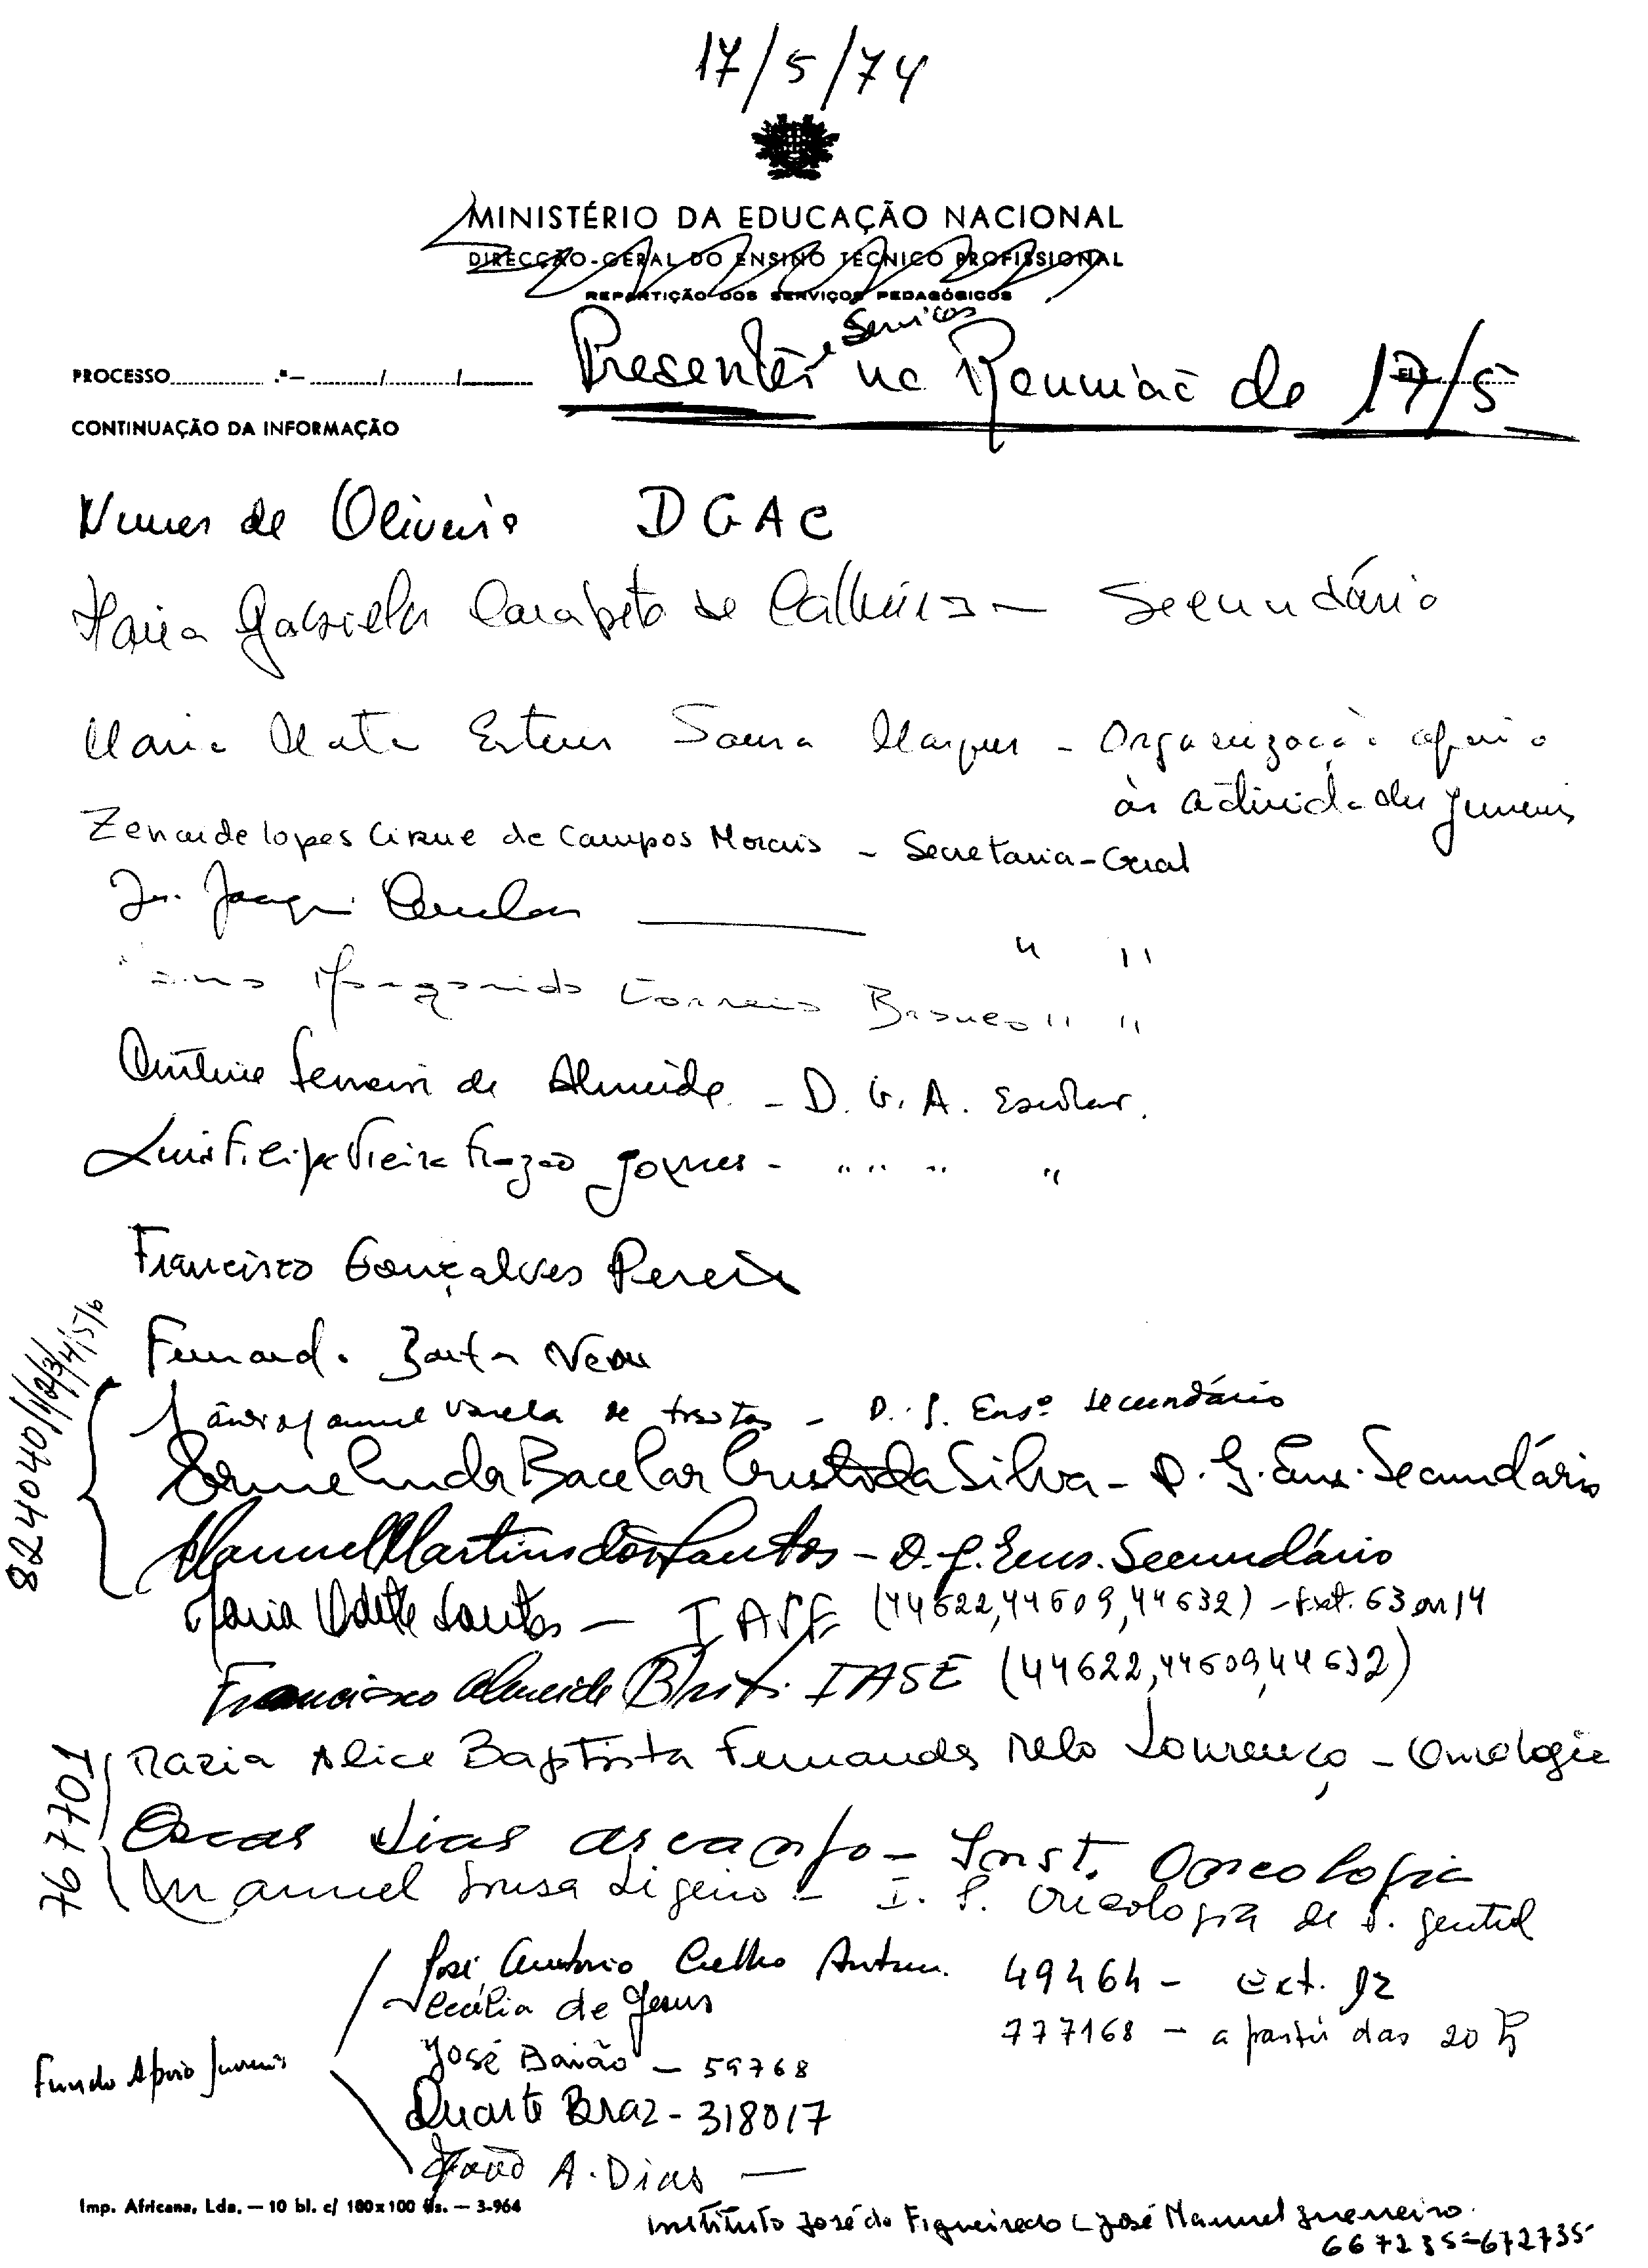 17/5/74
MINISTÉRIO DA EDUCAÇÃO NACIONAL
DIRECÇÃO-GERAL DO ENSINO TÉCNICO PROFISSIONAL
REPARTIÇÃO DOS SERVIÇOS PEDAGÓGICOS
e Serviços
PROCESSO ............ .º— ........../........../..........
Presentes na Reunião de 17/5
CONTINUAÇÃO DA INFORMAÇÃO
Nunes de Oliveira DGAC
Maria Gabriela Carapeto de — Secundário
Maria Marques - Organização apoio
às actividades juvenis
Zenaide Lopes Cirne de Campos Morais - Secretaria-Geral
" "
Margarida Correia Branco " "
António Ferreira de Almeida - D. G. A. Escolar.
Luis Filipe Vieira Frazão Gomes - " " " "
Francisco Gonçalves Pereira
Fernando Neves
824040/1/2/3/4/5/6
Varela de Freitas - D. G. Ensº Secundário
Ermelinda Bacelar da Silva - D. G. Ens. Secundário
Manuel Martins dos Santos - D. G. Ens. Secundário
Maria Odette Santos - IASE (44622, 44609, 44632) - Ext. 63 ou 14
Francisco Almeida Brito IASE (44622, 44609, 44632)
767701
Maria Alice Baptista Fernandes Melo Lourenço - Oncologia
Oscar Dias - Inst. Oncologia
Manuel Sousa - I. P. Oncologia de F. Gentil
José António Coelho Antunes 49464 - Ext. 92
Cecília de Jesus 777168 - a partir das 20 h
Fundo Apoio Juvenis
José Baião - 59768
Duarte Braz - 318017
João A. Dias —
Imp. Africana, Lda. — 10 bl. c/ 100x100 fls. — 3-964
Instituto José de Figueiredo - José Manuel Guerreiro
667235-672735